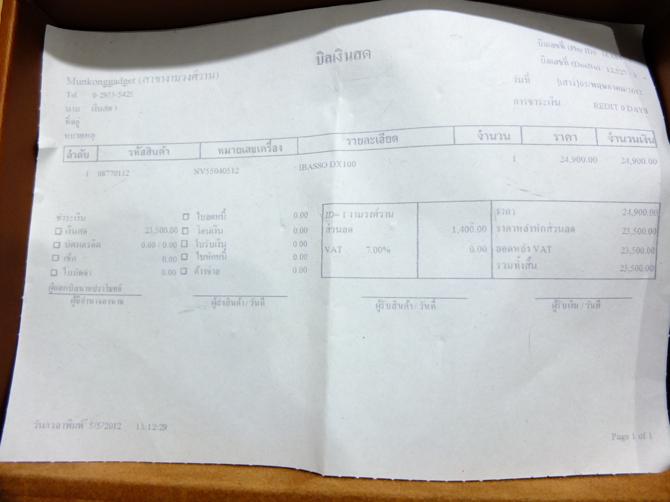 บิลเงินสด
บิลเลขที่
Munkonggadget (สาขางามวงศ์วาน)
บิลเลขที่
Tel 0-2953-5425
วันที่ (เสาร์)05/พฤษภาคม/2012
นาม เงินสด
การชำระเงิน REDIT 0 DAYS
ที่อยู่
หมายเหตุ
ลำดับ รหัสสินค้า หมายเลขเครื่อง รายละเอียด จำนวน ราคา จำนวนเงิน
1 08770112 NV55040512 IBASSO DX100 1 24,900.00 24,900.00
ชำระเงิน ใบลดหนี้ 0.00 ID= 1 งามวงศ์วาน ราคา 24,900.00
เงินสด 23,500.00 โอนเงิน 0.00 ส่วนลด 1,400.00 ราคาหลังหักส่วนลด 23,500.00
บัตรเครดิต 0.00 / 0.00 ใบรับเงิน 0.00 VAT 7.00% 0.00 ยอดหลัง VAT 23,500.00
เช็ค 0.00 0.00 รวมทั้งสิ้น 23,500.00
ใบมัดจำ 0.00 ค้างจ่าย 0.00
ผู้มีอำนาจลงนาม ผู้ส่งสินค้า/วันที่ ผู้รับสินค้า/วันที่ ผู้รับเงิน/วันที่
วันเวลาพิมพ์ 5/5/2012 13:12:29
Page 1 of 1